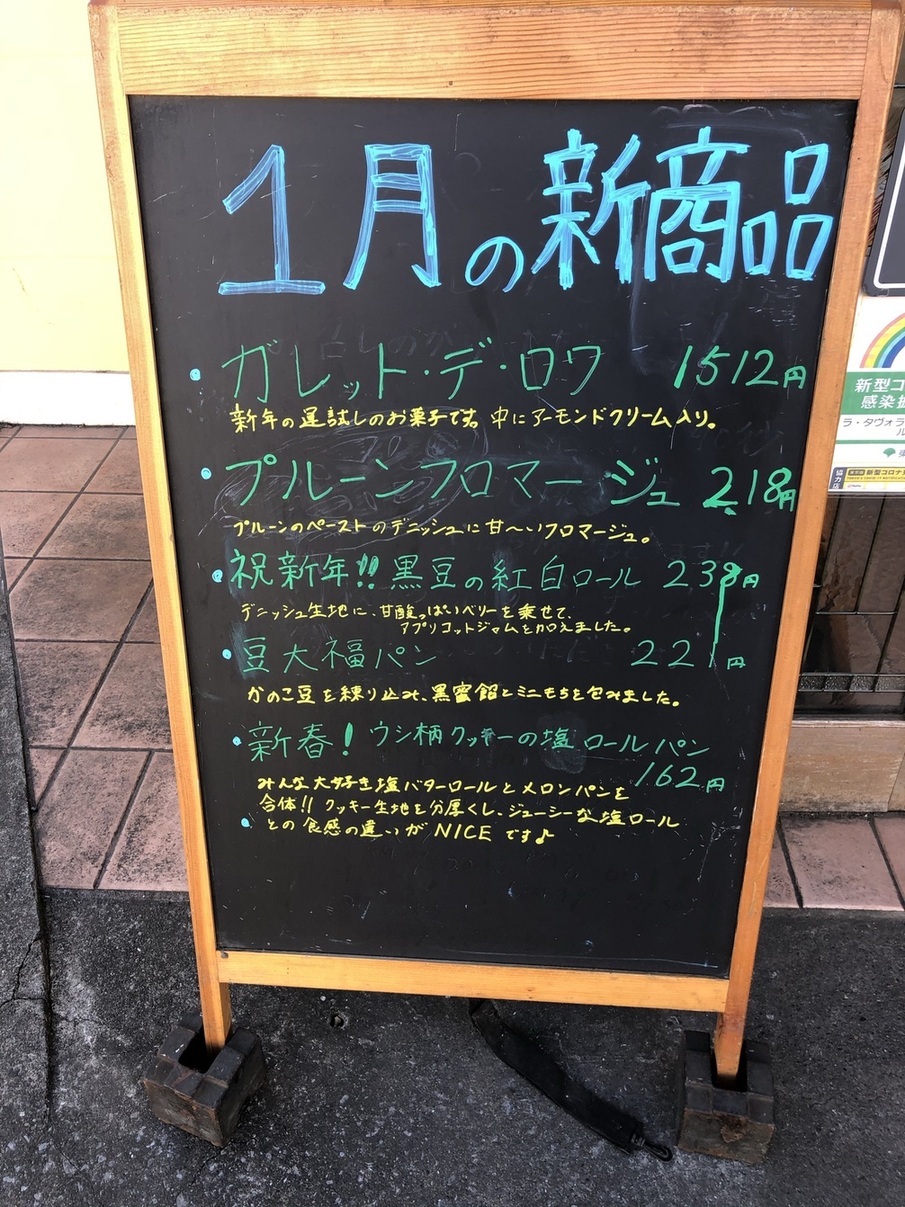 1月の新商品
・ガレット・デ・ロワ 1512円
新年の運試しのお菓子です。中にアーモンドクリーム入り。
・プルーンフロマージュ 218円
プルーンのペーストのデニッシュに甘〜いフロマージュ。
・祝新年!!黒豆の紅白ロール 238円
デニッシュ生地に、甘酸っぱいベリーを乗せて、
アプリコットジャムを加えました。
・豆大福パン 221円
かのこ豆を練り込み、黒蜜餡とミニもちを包みました。
・新春!ウシ柄クッキーの塩ロールパン
162円
みんな大好き塩バターロールとメロンパンを
合体!!クッキー生地を分厚くし、ジューシーな塩ロール
・との食感の違いがNICEです♪
新型コ
感染拡
ラ・タヴォラ
新型コロナ